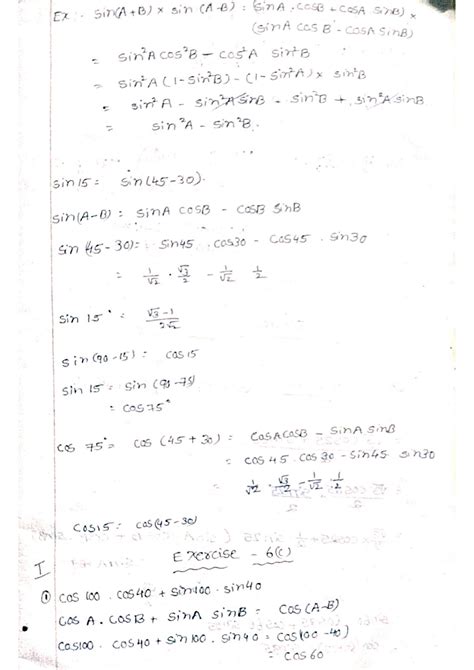 Ex:- sin(A+B) × sin (A-B) : (sinA . cosB + cosA sinB) ×
(sinA cosB - cosA sinB)
= sin²A cos²B - cos²A sin²B
= sin²A (1-sin²B) - (1-sin²A) × sin²B
= sin²A - sin²A sin²B - sin²B + sin²A sin²B
= sin²A - sin²B.
sin15 = sin(45-30).
sin(A-B) : sinA cosB - cosB sinB
sin(45-30) = sin45 . cos30 - cos45 . sin30
= 1/√2 . √3/2 - 1/√2 1/2
sin 15° = √3-1/2√2
sin(90-15) = cos15
sin 15 = sin (90-75)
= cos75°
cos 75° = cos (45+30) = cosA cosB - sinA sinB
= cos45 . cos30 - sin45 sin30
= 1/√2 . √3/2 - 1/√2 . 1/2
cos15 = cos(45-30)
Exercise - 6(c)
I
① cos100 . cos40 + sin100 . sin40
cosA . cosB + sinA sinB = cos(A-B)
cos100 . cos40 + sin100 . sin40 = cos(100-40)
= cos60